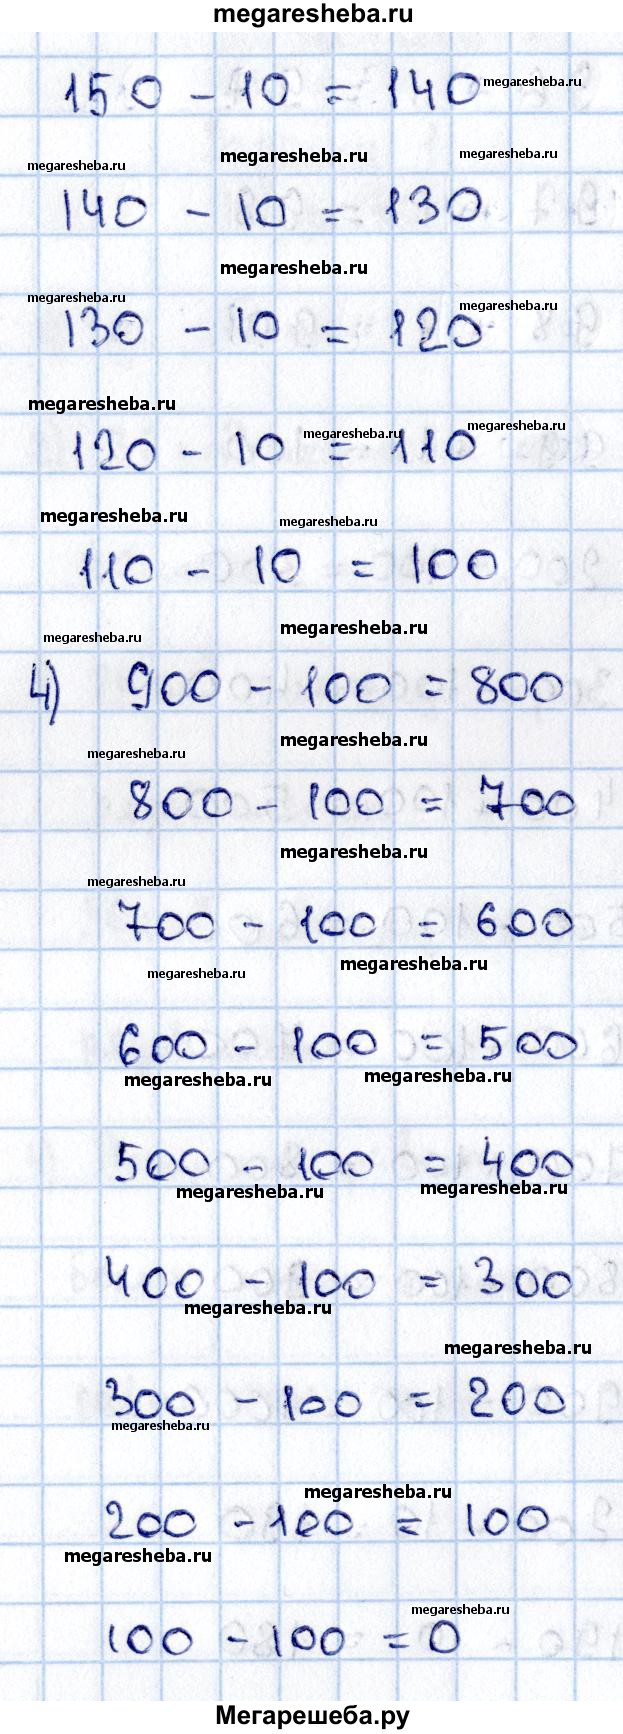 megaresheba.ru
150 - 10 = 140 megaresheba.ru
megaresheba.ru megaresheba.ru megaresheba.ru
140 - 10 = 130
megaresheba.ru
megaresheba.ru megaresheba.ru
130 - 10 = 120
megaresheba.ru
120 - 10 = 110 megaresheba.ru megaresheba.ru
megaresheba.ru megaresheba.ru
110 - 10 = 100
megaresheba.ru megaresheba.ru
4) 900 - 100 = 800
megaresheba.ru megaresheba.ru
800 - 100 = 700
megaresheba.ru
megaresheba.ru
700 - 100 = 600
megaresheba.ru megaresheba.ru
600 - 100 = 500
megaresheba.ru megaresheba.ru
500 - 100 = 400
megaresheba.ru megaresheba.ru
400 - 100 = 300
megaresheba.ru
megaresheba.ru
300 - 100 = 200
megaresheba.ru
megaresheba.ru
200 - 100 = 100
megaresheba.ru
megaresheba.ru
100 - 100 = 0
Мегарешеба.ру